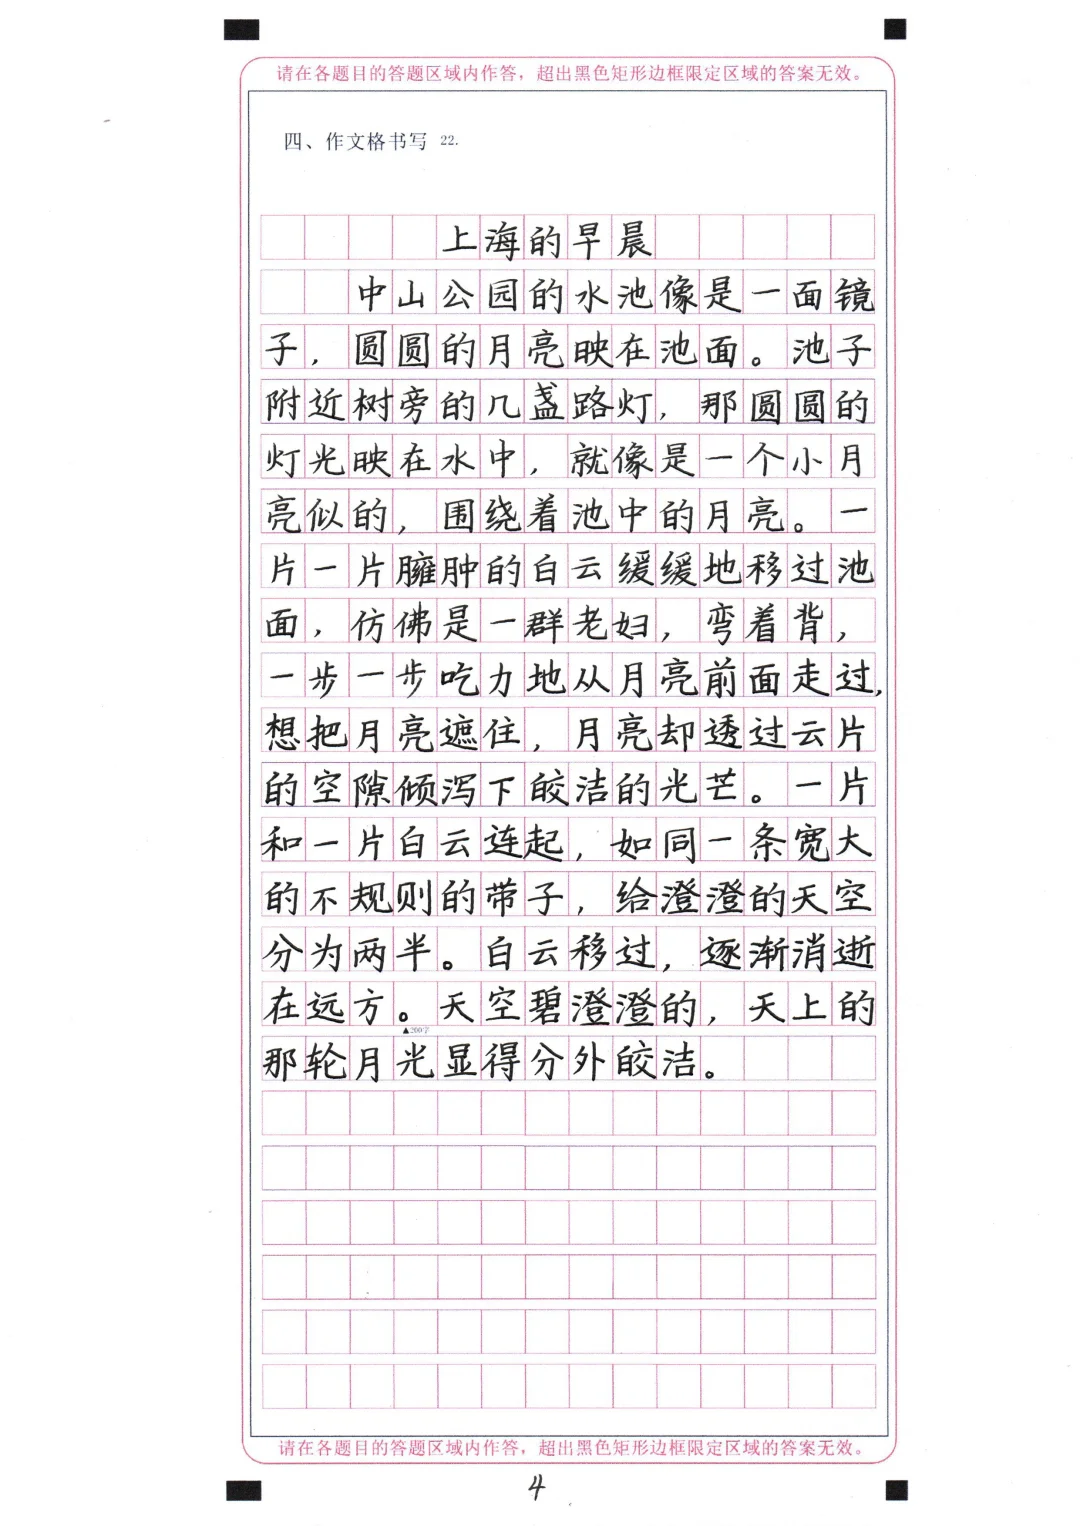 请在各题目的答题区域内作答，超出黑色矩形边框限定区域的答案无效。
四、作文格书写 22.
上海的早晨
中山公园的水池像是一面镜
子，圆圆的月亮映在池面。池子
附近树旁的几盏路灯，那圆圆的
灯光映在水中，就像是一个小月
亮似的，围绕着池中的月亮。一
片一片臃肿的白云缓缓地移过池
面，仿佛是一群老妇，弯着背，
一步一步吃力地从月亮前面走过，
想把月亮遮住，月亮却透过云片
的空隙倾泻下皎洁的光芒。一片
和一片白云连起，如同一条宽大
的不规则的带子，给澄澄的天空
分为两半。白云移过，逐渐消逝
在远方。天空碧澄澄的，天上的
▲200字
那轮月光显得分外皎洁。
请在各题目的答题区域内作答，超出黑色矩形边框限定区域的答案无效。
4